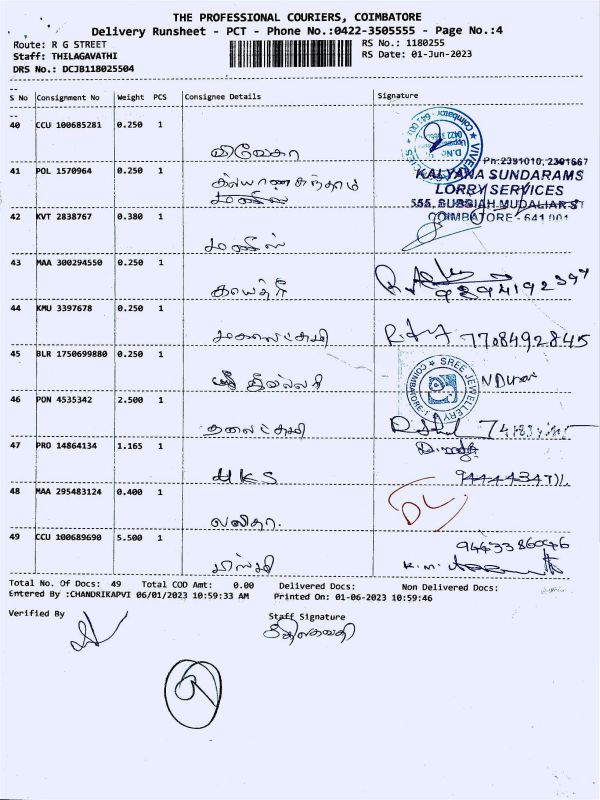 THE PROFESSIONAL COURIERS, COIMBATORE
Delivery Runsheet - PCT - Phone No.:0422-3505555 - Page No.:4
Route: R G STREET
RS No.: 1180255
Staff: THILAGAVATHI
RS Date: 01-Jun-2023
DRS No.: DCJB118025504
S No Consignment No Weight PCS Consignee Details Signature
40 CCU 100685281 0.250 1
விவேகா
Ph:2391010, 2301667
41 POL 1570964 0.250 1
கல்யாணசுந்தரம்
KALYANA SUNDARAMS
LORRY SERVICES
555, SUBBIAH MUDALIAR ST
COIMBATORE - 641 001
42 KVT 2838767 0.380 1
43 MAA 300294550 0.250 1
காயத்ரி
44 KMU 3397678 0.250 1
மகாலட்சுமி 7708492845
45 BLR 1750699880 0.250 1
ஸ்ரீ ஜுவல்லரி
SREE JEWELLERY
COIMBATORE-1
46 PON 4535342 2.500 1
47 PRO 14864134 1.165 1
MKS
48 MAA 295483124 0.400 1
லலிதா.
DL
49 CCU 100689690 5.500 1
K.M.
Total No. Of Docs: 49 Total COD Amt: 0.00 Delivered Docs: Non Delivered Docs:
Entered By :CHANDRIKAPVI 06/01/2023 10:59:33 AM Printed On: 01-06-2023 10:59:46
Verified By Staff Signature